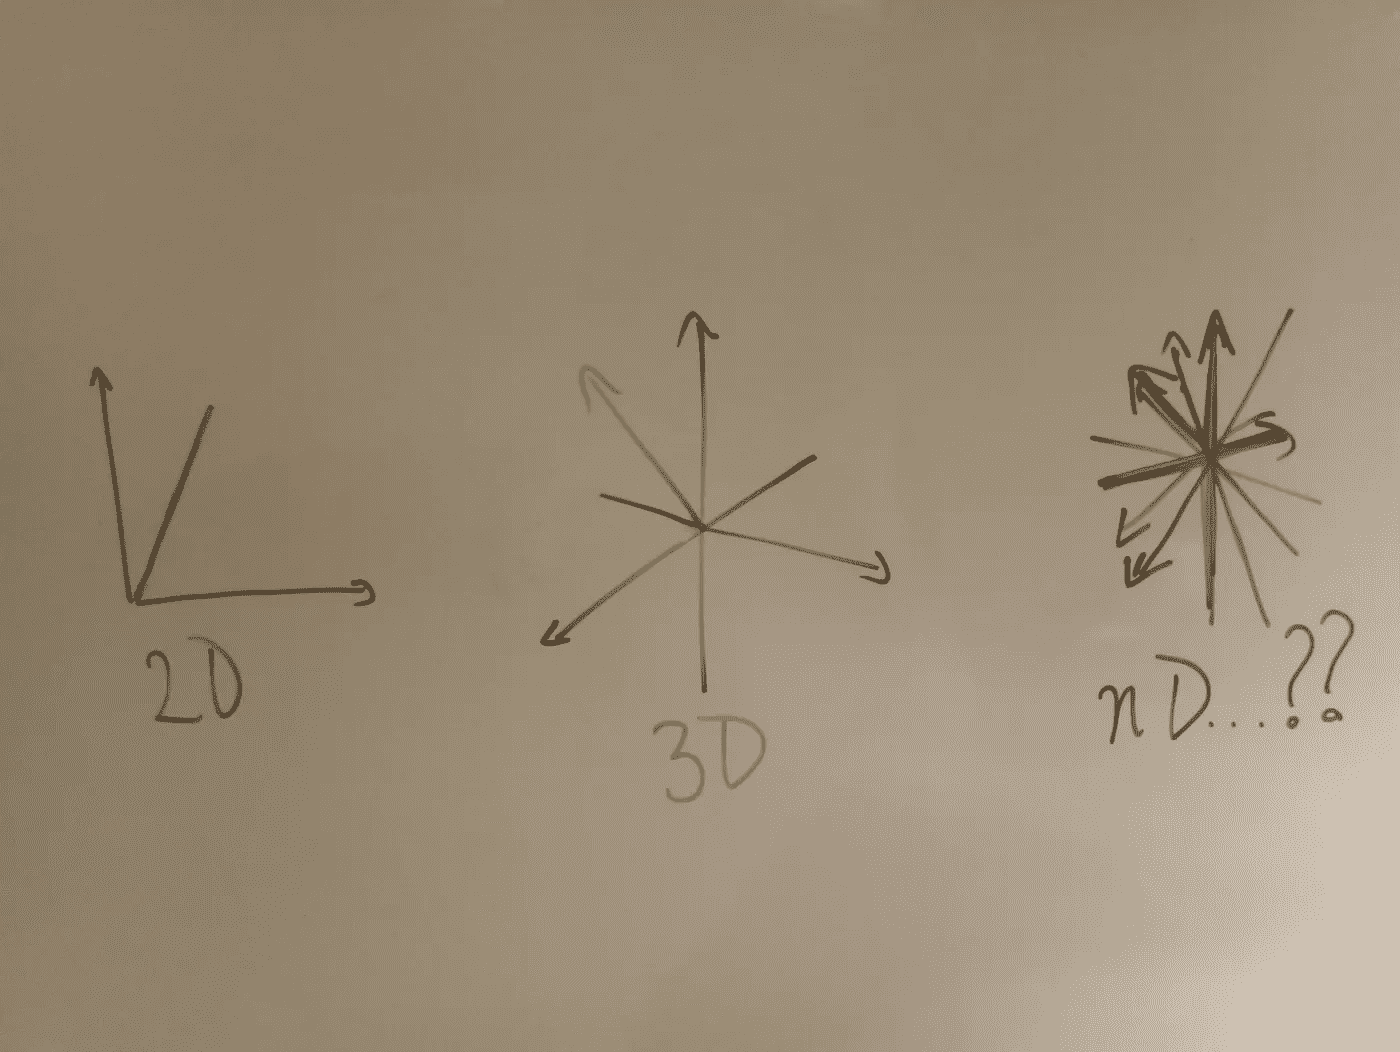 2D
3D
nD...??